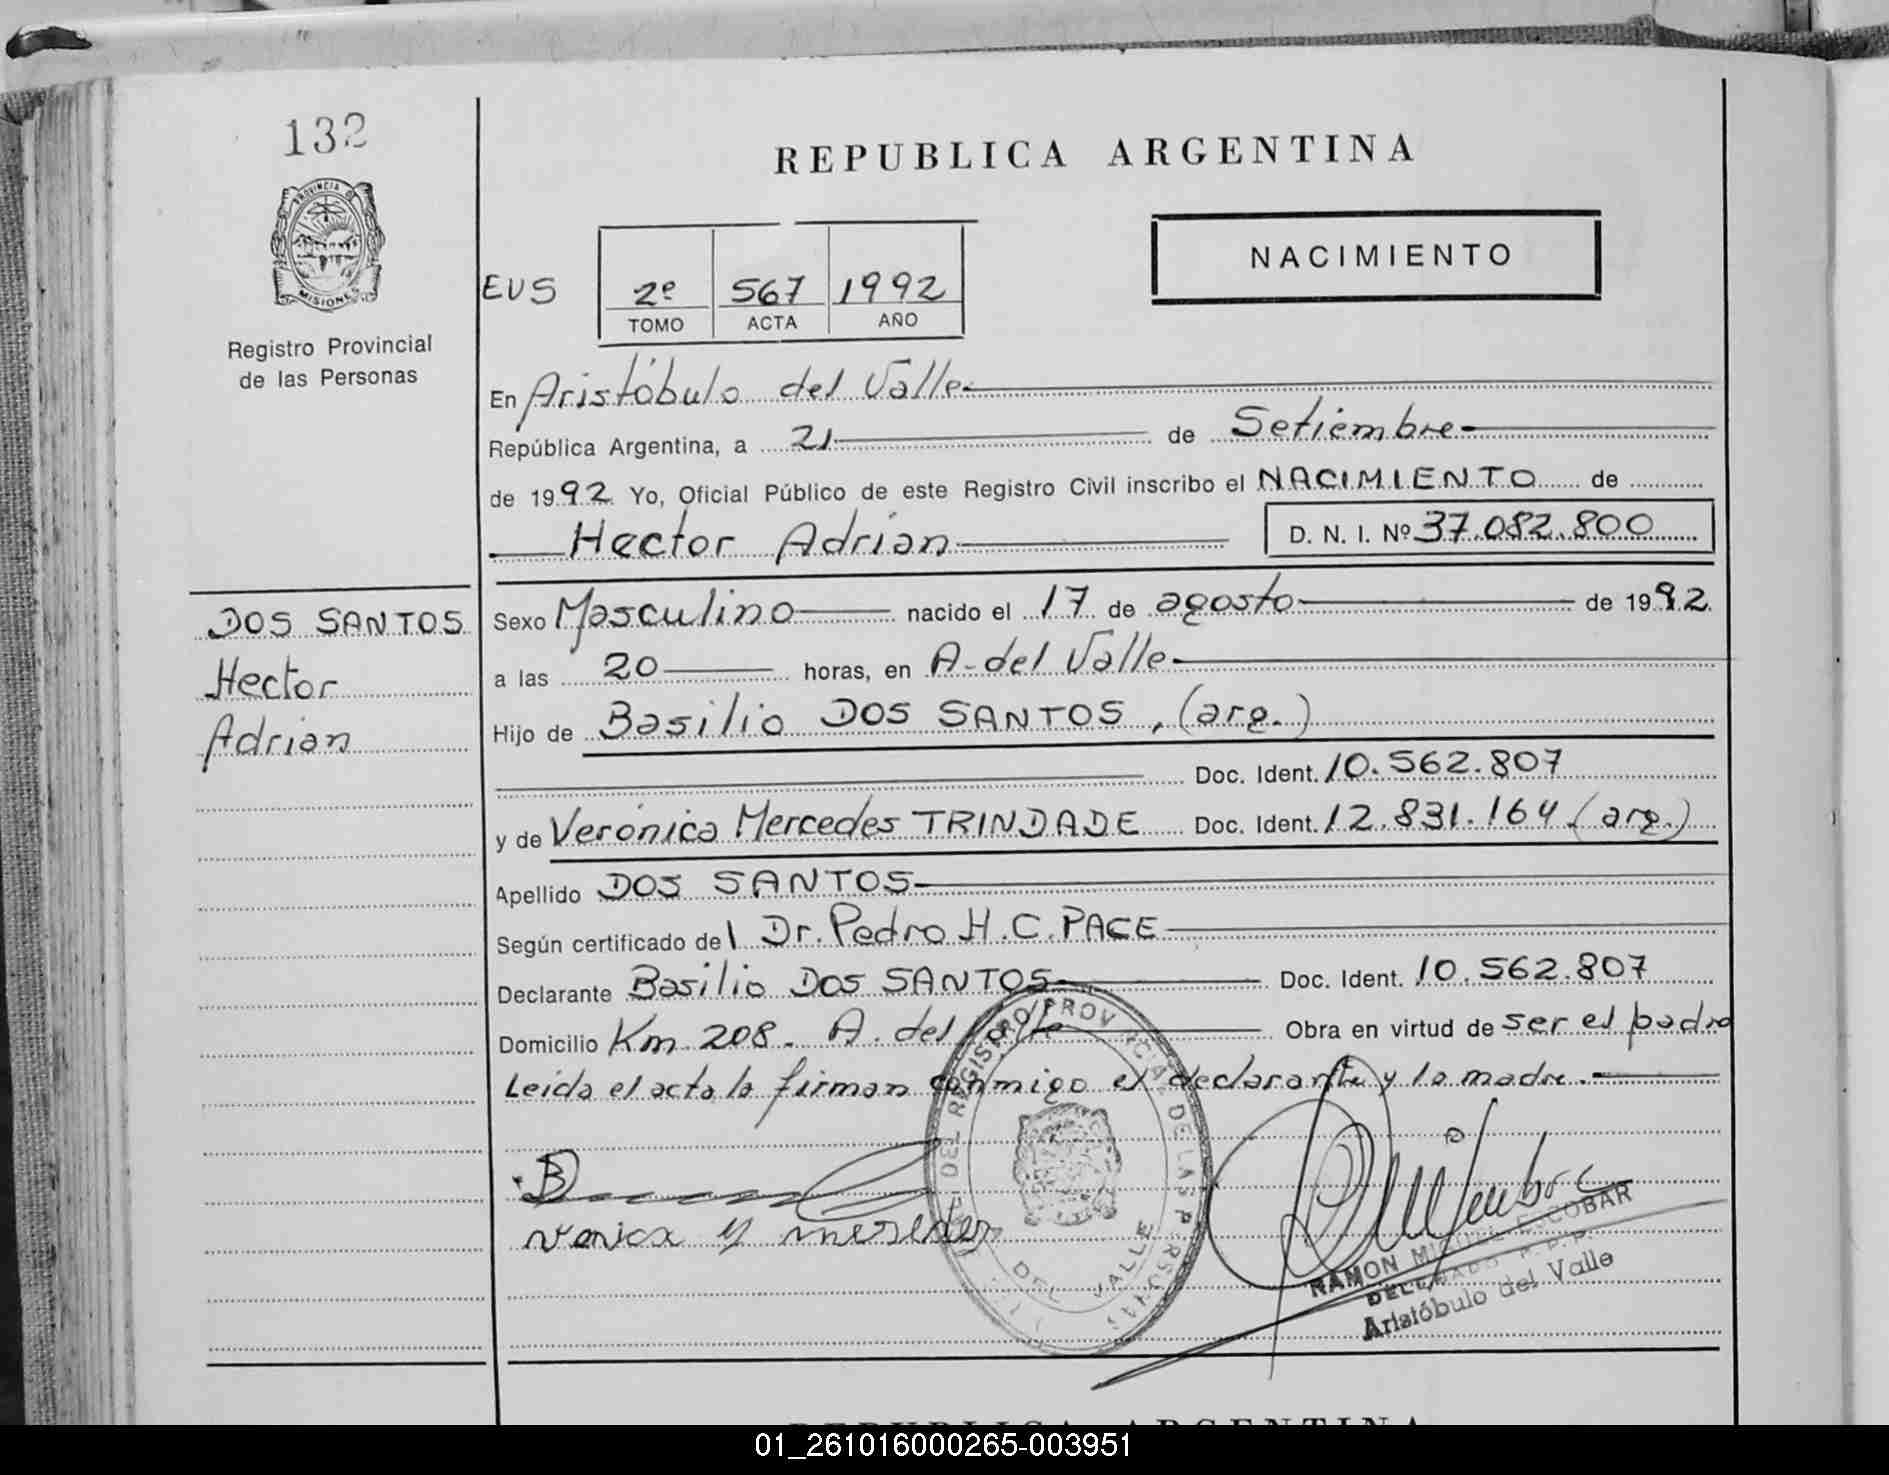 132
PROVINCIA DE
MISIONES
Registro Provincial
de las Personas
REPUBLICA ARGENTINA
NACIMIENTO
EUS
2º 567 1992
TOMO ACTA AÑO
En Aristóbulo del Valle
República Argentina, a 21 de Setiembre
de 1992 Yo, Oficial Público de este Registro Civil inscribo el NACIMIENTO de
Hector Adrian D. N. I. Nº 37.082.800
DOS SANTOS
Hector
Adrian
Sexo Masculino nacido el 17 de agosto de 1992
a las 20 horas, en A. del Valle
Hijo de Basilio DOS SANTOS, (arg.)
Doc. Ident. 10.562.807
y de Verónica Mercedes TRINDADE Doc. Ident. 12.831.164 (arg.)
Apellido DOS SANTOS
Según certificado del Dr. Pedro H. C. PACE
Declarante Basilio DOS SANTOS Doc. Ident. 10.562.807
Domicilio Km 208. A. del Valle Obra en virtud de ser el padre
Leida el acta la firman conmigo el declarante y la madre.
DEL REGISTRO PROVINCIAL DE LAS PERSONAS
DEL VALLE
RAMON MIGUEL ESCOBAR
DELEGADO R.P.P.
Aristóbulo del Valle
REPUBLICA ARGENTINA
01_261016000265-003951